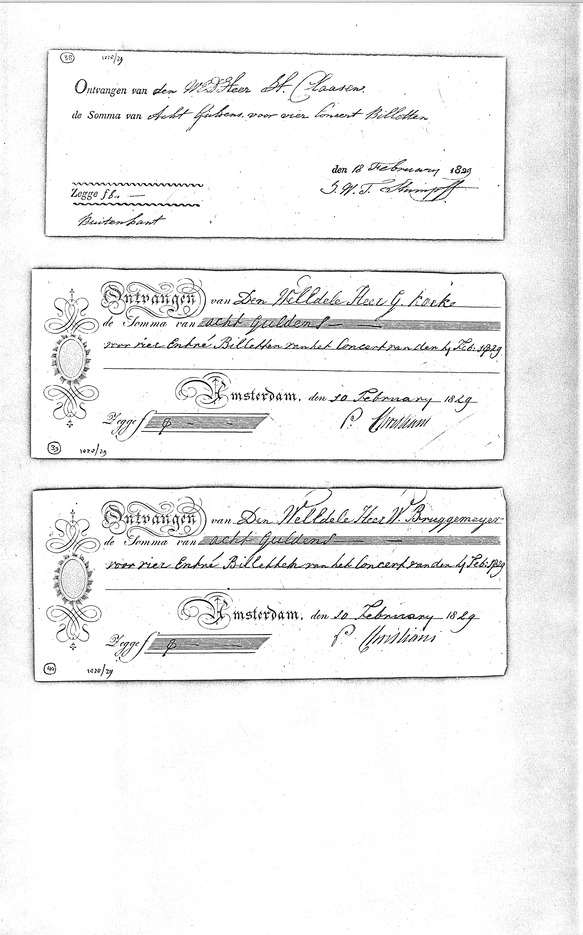 38 1020/29
Ontvangen van den W.E. Heer H. Claasen
de Somma van Acht Guldens, voor vier Concert Billetten
den 18 February 1829
Zegge f 8.. — J. W. T. Stumpff
Buitenkant
Ontvangen van Den WelEdele Heer G.
de Somma van acht Guldens
voor vier Entré Billetten van het Concert van den Feb: 1829
Amsterdam, den 20 February 1829
Zegge f 8 P. Christiani
39 1020/29
Ontvangen van Den WelEdele Heer W. Bruggemeyer
de Somma van acht Guldens
voor vier Entré Billetten van het Concert van den Feb: 1829
Amsterdam, den 20 February 1829
Zegge f 8 P. Christiani
40 1020/29